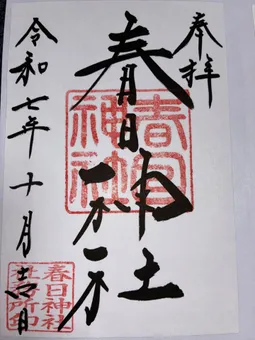 奉拝
春日神社
春日神社
令和七年十月吉日
春日神社
社務所印